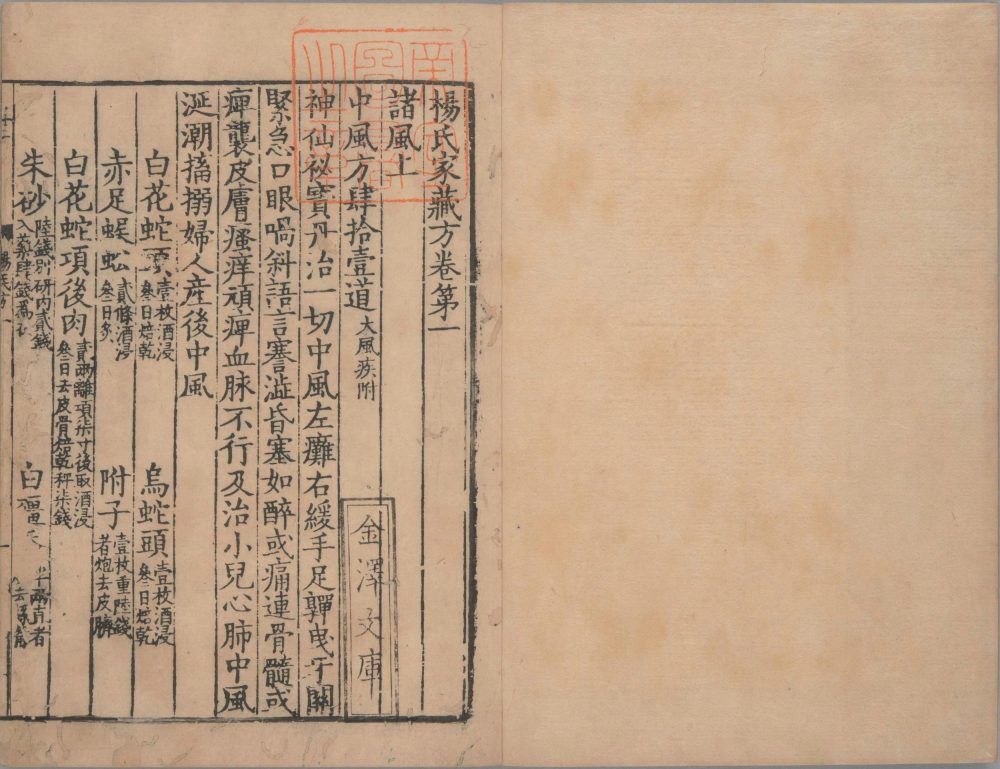 楊氏家藏方卷第一
諸風上
中風方肆拾壹道 大風疾附
金澤文庫
神仙祕寶丹治一切中風左癱右緩手足嚲曳牙關
緊急口眼喎斜語言謇澁昏塞如醉或痛連骨髓或
痺襲皮膚瘙痒頑痺血脉不行及治小兒心肺中風
涎潮搐搦婦人産後中風
白花蛇頭 壹枚酒浸叁日焙乾 烏蛇頭 壹枚酒浸叁日焙乾
赤足蜈蚣 貳條酒浸叁日炙 附子 壹枚重陸錢者炮去皮臍
白花蛇項後肉 貳兩離項柒寸後取酒浸叁日去皮骨焙乾秤柒錢
朱砂 陸錢別研内貳錢入藥肆錢爲衣 白 半兩直者去